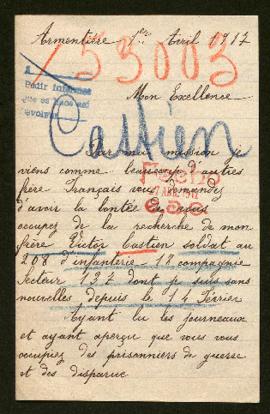 Armentière 1er Avril 1917
153003
A
Pedir informes
Mon Excellence
Castien
Par mission je
viens comme beaucoup d'autres
frère français vous demander
d'avoir la bonté de vous
occupez de la recherche de mon
frère Victor Castien soldat au
208 d'infanterie 18 compagnie
Secteur 132 dont je suis sans
nouvelles depuis le 14 Février
Ayant lu les journeaux
et ayant aperçu que vous vous
occupiez des prisonniers de guerre
et des disparue